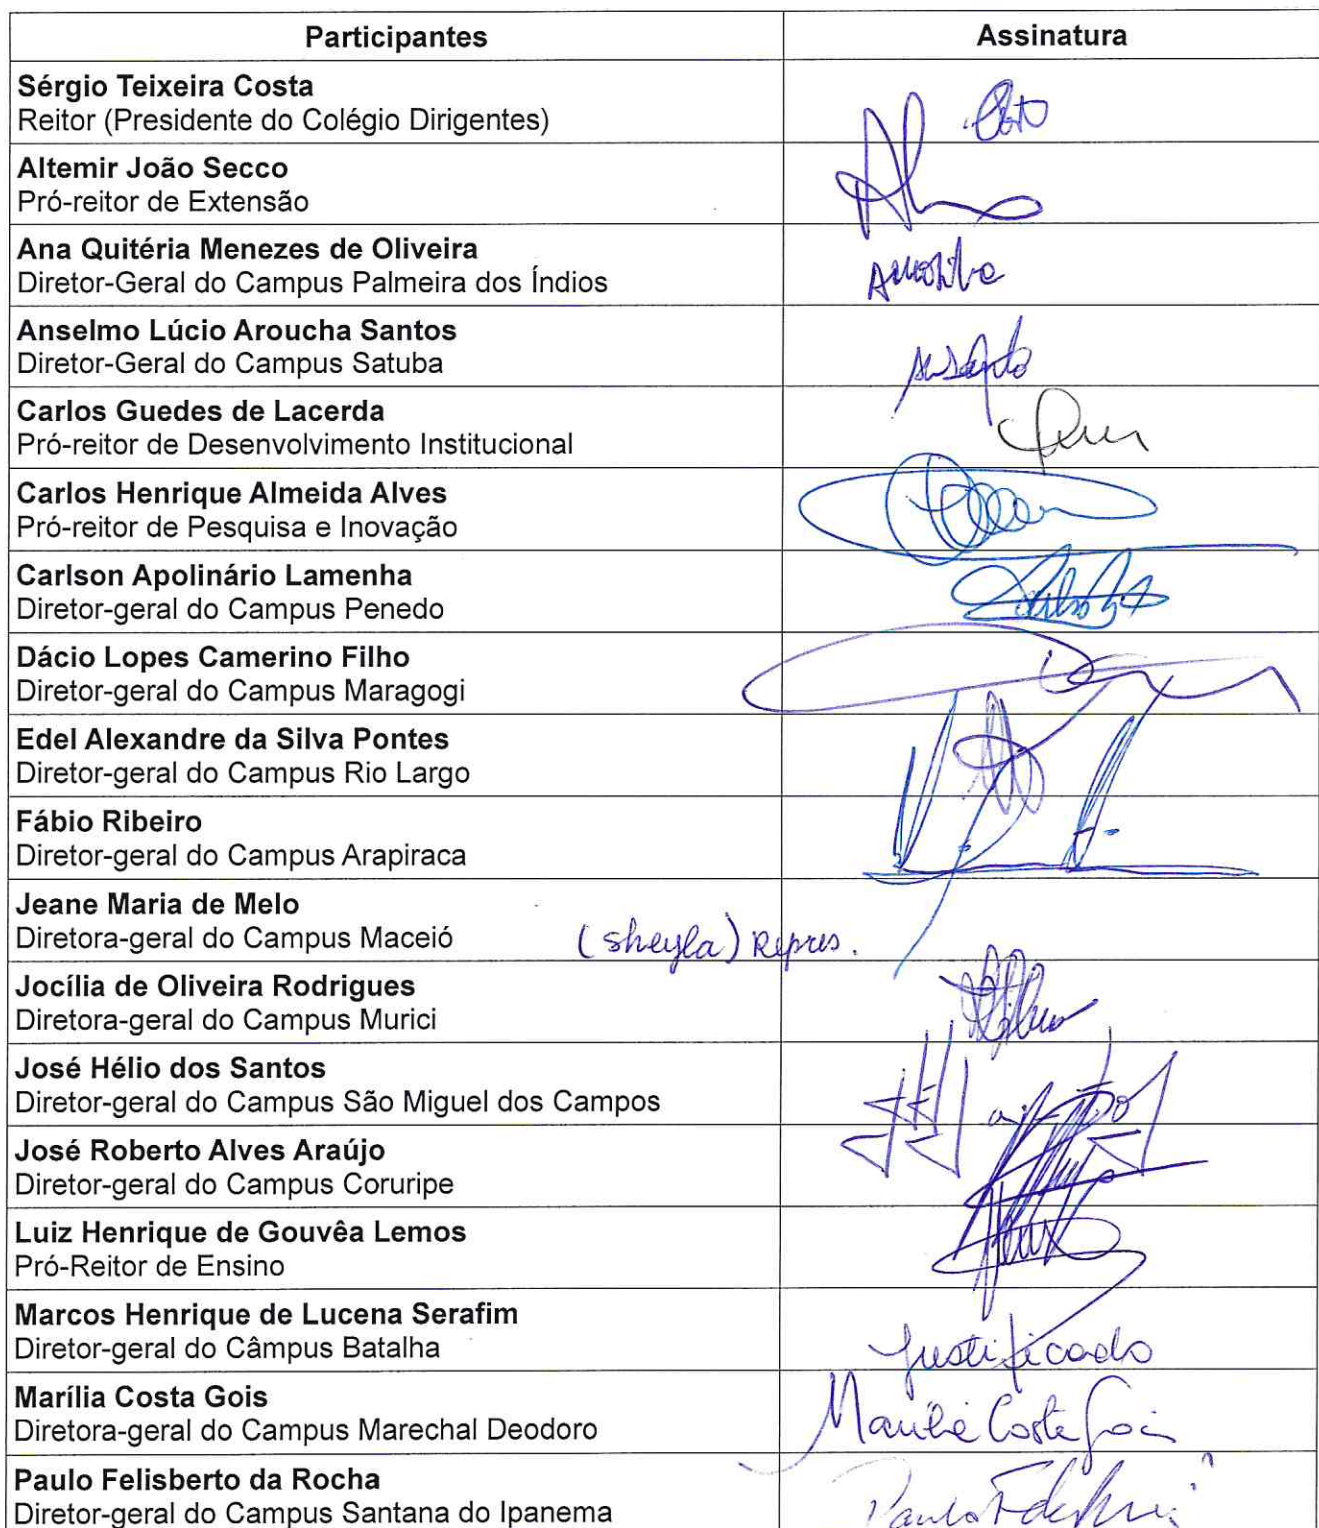 Participantes Assinatura
Sérgio Teixeira Costa
Reitor (Presidente do Colégio Dirigentes)
Altemir João Secco
Pró-reitor de Extensão
Ana Quitéria Menezes de Oliveira
Diretor-Geral do Campus Palmeira dos Índios
Anselmo Lúcio Aroucha Santos
Diretor-Geral do Campus Satuba
Carlos Guedes de Lacerda
Pró-reitor de Desenvolvimento Institucional
Carlos Henrique Almeida Alves
Pró-reitor de Pesquisa e Inovação
Carlson Apolinário Lamenha
Diretor-geral do Campus Penedo
Dácio Lopes Camerino Filho
Diretor-geral do Campus Maragogi
Edel Alexandre da Silva Pontes
Diretor-geral do Campus Rio Largo
Fábio Ribeiro
Diretor-geral do Campus Arapiraca
Jeane Maria de Melo
Diretora-geral do Campus Maceió (Sheyla) Repres.
Jocília de Oliveira Rodrigues
Diretora-geral do Campus Murici
José Hélio dos Santos
Diretor-geral do Campus São Miguel dos Campos
José Roberto Alves Araújo
Diretor-geral do Campus Coruripe
Luiz Henrique de Gouvêa Lemos
Pró-Reitor de Ensino
Marcos Henrique de Lucena Serafim
Diretor-geral do Câmpus Batalha Justificado
Marília Costa Gois
Diretora-geral do Campus Marechal Deodoro Marília Costa Gois
Paulo Felisberto da Rocha
Diretor-geral do Campus Santana do Ipanema Paulo